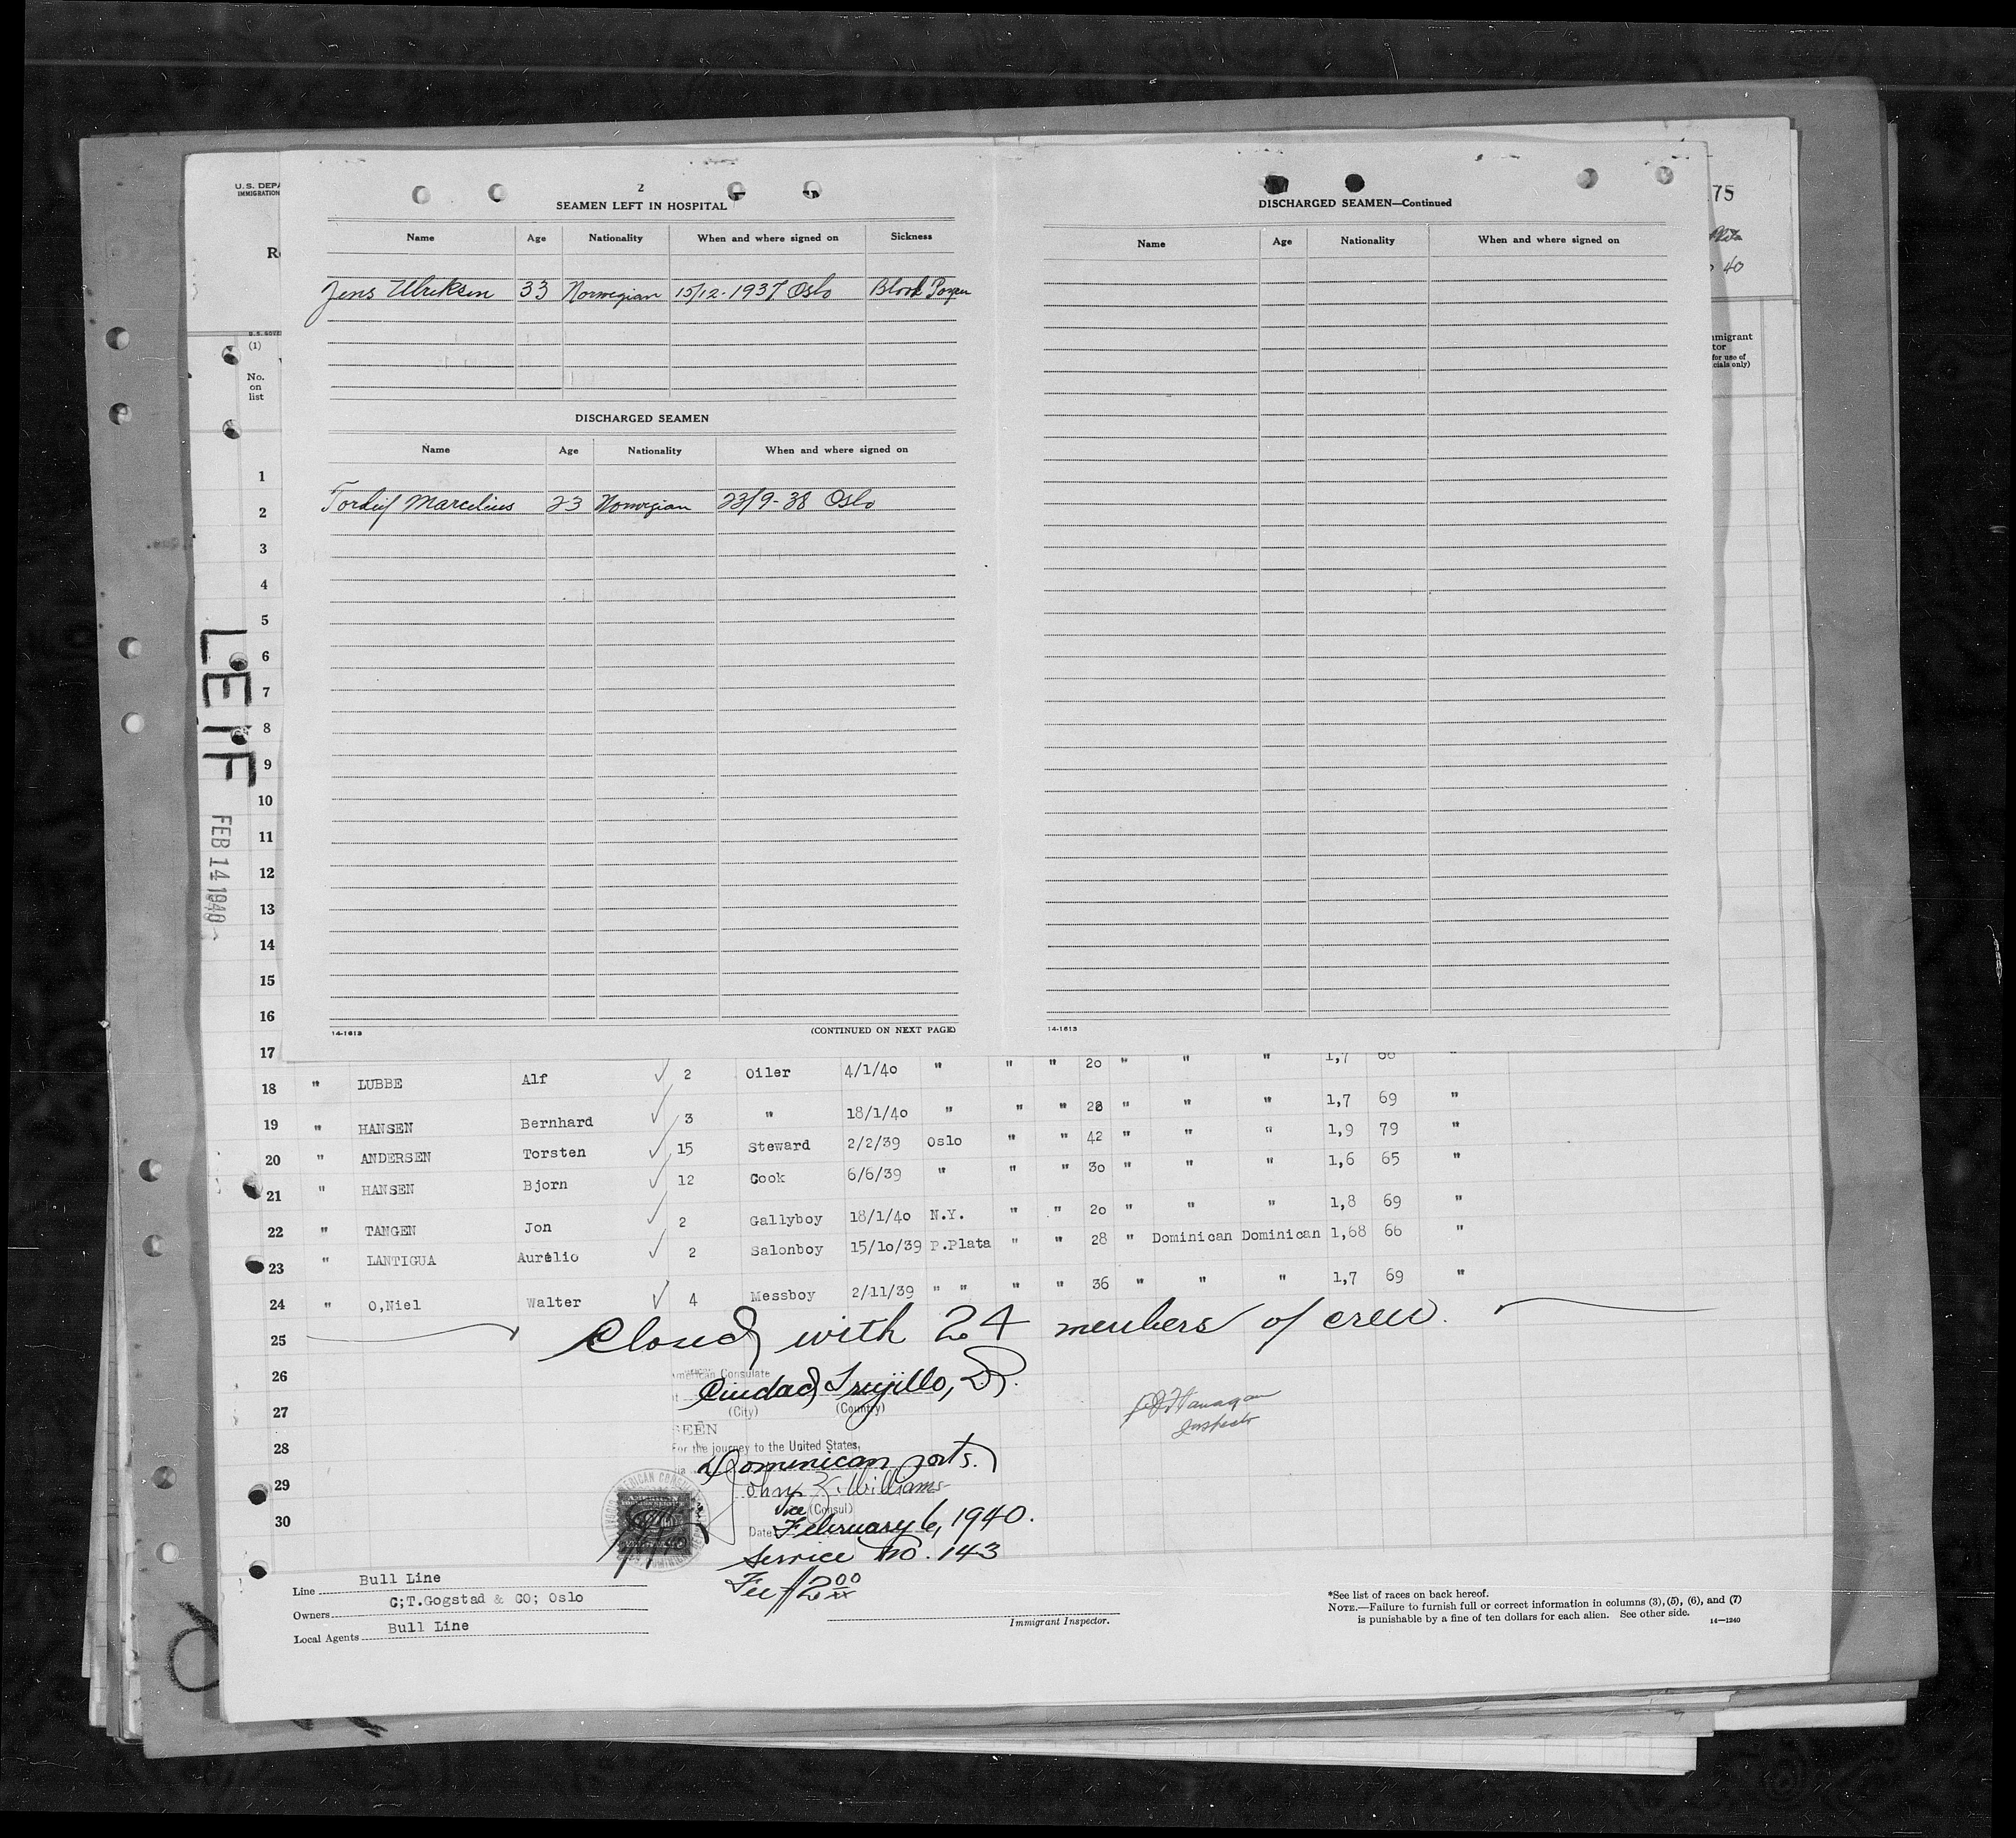 U.S. DEPA
IMMIGRATION
2
SEAMEN LEFT IN HOSPITAL
Name Age Nationality When and where signed on Sickness
Jens Ulriksen 33 Norwegian 15/12-1937 Oslo Blood
DISCHARGED SEAMEN
Name Age Nationality When and where signed on
Marcelius 23 Norwegian 23/9-38 Oslo
14-1613 (CONTINUED ON NEXT PAGE)
DISCHARGED SEAMEN—Continued
Name Age Nationality When and where signed on
14-1613
75
40
mmigrant
tor
for use of
cials only)
(1)
No.
on
list
1
2
3
4
5
6
7
8
9
10
11
12
13
14
15
16
LEIF
FEB 14 1940
17
18 " LUBBE Alf ✓ 2 Oiler 4/1/40 " " " 20 " " " 1,7 68 "
19 " HANSEN Bernhard ✓ 3 " 18/1/40 " " " 28 " " " 1,7 69 "
20 " ANDERSEN Torsten ✓ 15 Steward 2/2/39 Oslo " " 42 " " " 1,9 79 "
21 " HANSEN Bjorn ✓ 12 Cook 6/6/39 " " " 30 " " " 1,6 65 "
22 " TANGEN Jon ✓ 2 Gallyboy 18/1/40 N.Y. " " 20 " " " 1,8 69 "
23 " LANTIGUA Aurelio ✓ 2 Salonboy 15/10/39 P.Plata " " 28 " Dominican Dominican 1,68 66 "
24 " O,Niel Walter ✓ 4 Messboy 2/11/39 " " " " 36 " " " 1,7 69 "
25 Closed with 24 members of crew.
26 American Consulate
Ciudad Trujillo, D.R.
27 (City) (Country)
SEEN
28 For the journey to the United States,
Dominican ports.
29 John Williams
Vice (Consul)
30 Date February 6, 1940.
Service No. 143
Fee $2.00
Flanagan
Inspector
Line Bull Line
Owners C;T.Gogstad & CO; Oslo
Local Agents Bull Line
Immigrant Inspector.
*See list of races on back hereof.
NOTE.—Failure to furnish full or correct information in columns (3), (5), (6), and (7)
is punishable by a fine of ten dollars for each alien. See other side. 14—1240